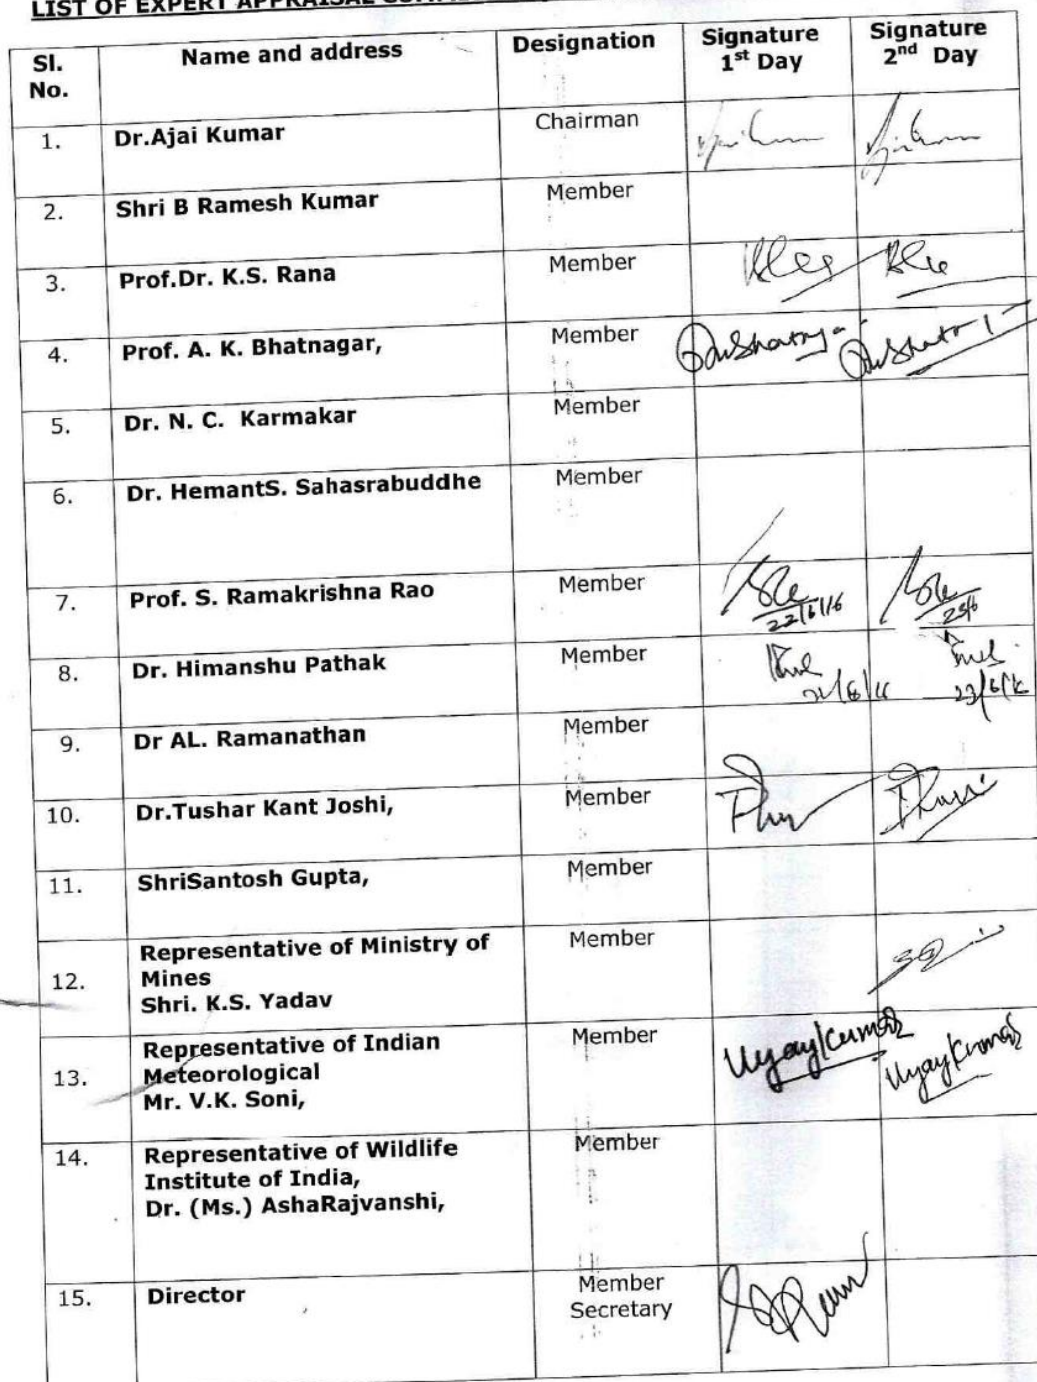 LIST OF EXPERT APPRAISAL
Sl. No. Name and address Designation Signature 1st Day Signature 2nd Day
1. Dr.Ajai Kumar Chairman
2. Shri B Ramesh Kumar Member
3. Prof.Dr. K.S. Rana Member
4. Prof. A. K. Bhatnagar, Member
5. Dr. N. C. Karmakar Member
6. Dr. HemantS. Sahasrabuddhe Member
7. Prof. S. Ramakrishna Rao Member
22/6/16
8. Dr. Himanshu Pathak Member
9. Dr AL. Ramanathan Member
10. Dr.Tushar Kant Joshi, Member
11. ShriSantosh Gupta, Member
12. Representative of Ministry of Member
Mines
Shri. K.S. Yadav
13. Representative of Indian Member
Meteorological
Mr. V.K. Soni,
Vijay Kumar Vijay Kumar
14. Representative of Wildlife Member
Institute of India,
Dr. (Ms.) AshaRajvanshi,
15. Director Member
Secretary